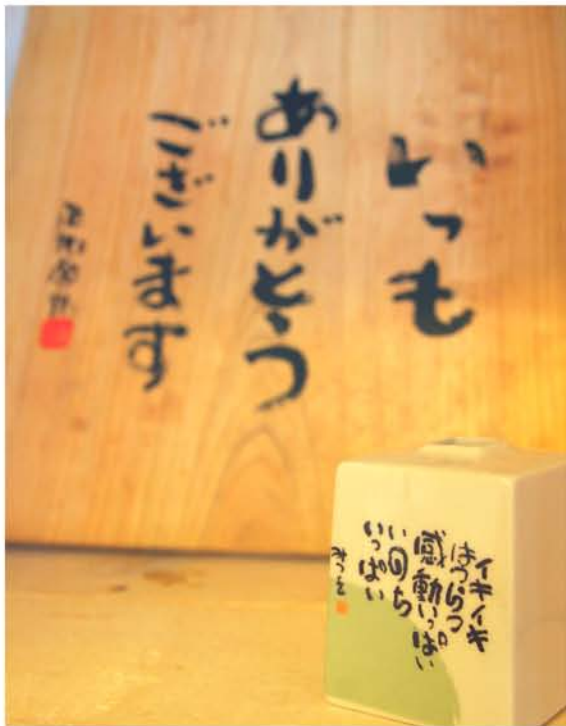 いつも
ありがとう
ございます
イキイキ
はつらつ
感動いっぱい
いのち
いっぱい
みつを